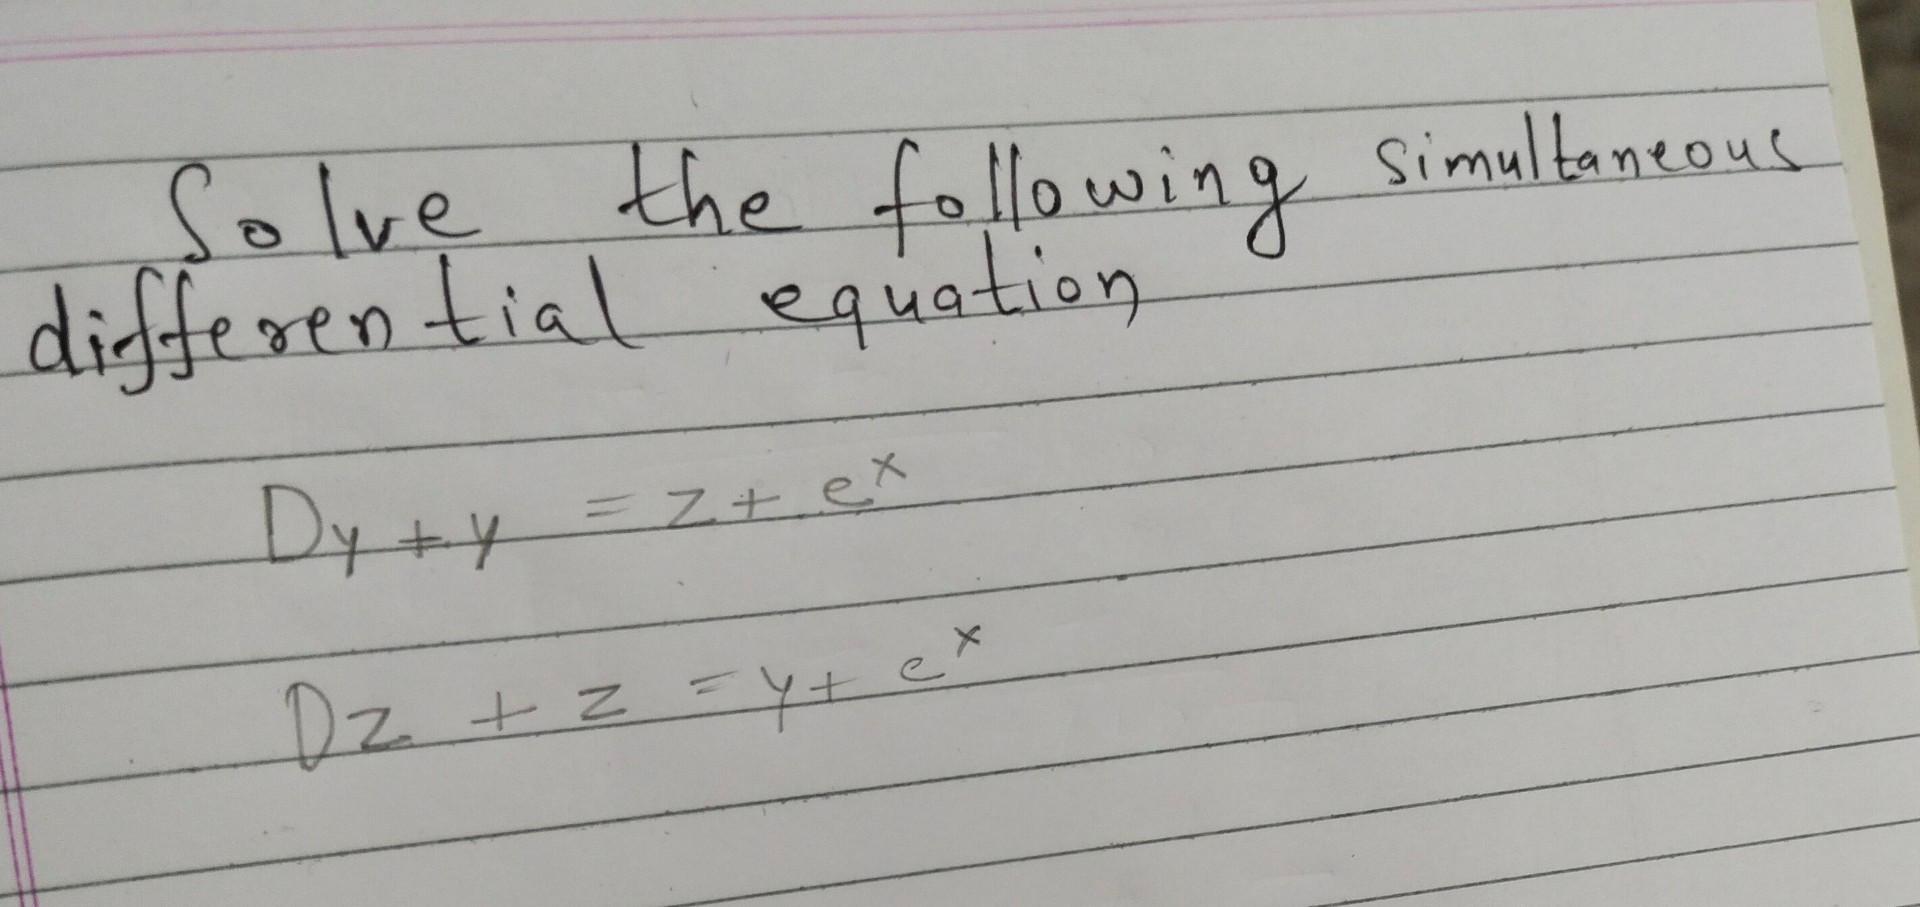 Solve the following simultaneous
differential equation
Dy + y = z + e^x
Dz + z = y + e^x